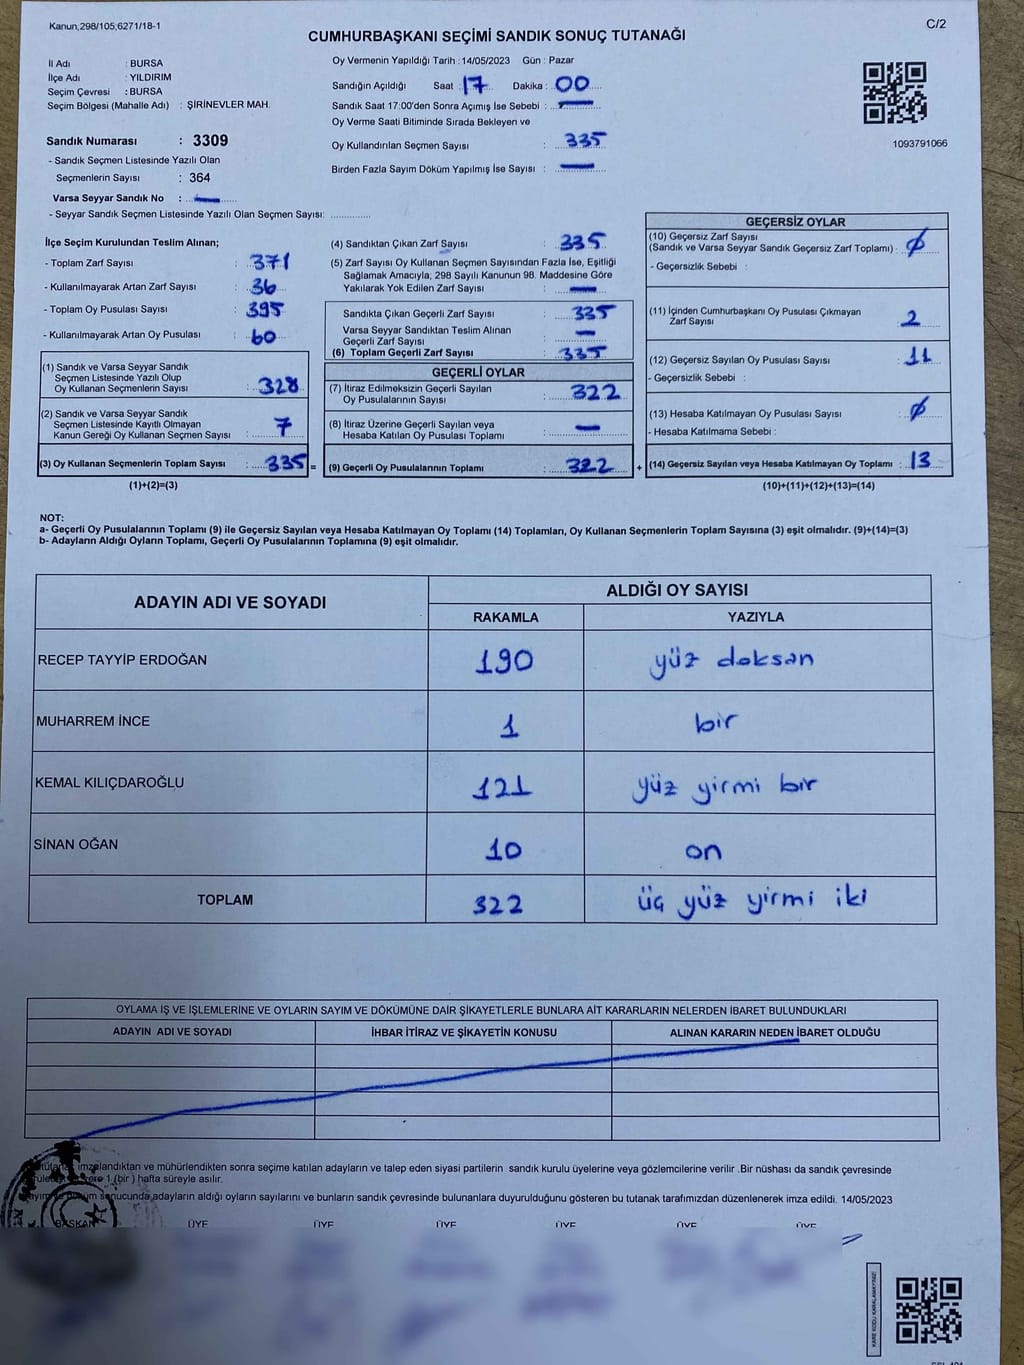 Kanun;298/105;6271/18-1
C/2
CUMHURBAŞKANI SEÇİMİ SANDIK SONUÇ TUTANAĞI
İl Adı : BURSA
İlçe Adı : YILDIRIM
Seçim Çevresi : BURSA
Seçim Bölgesi (Mahalle Adı) : ŞİRİNEVLER MAH.
Sandık Numarası : 3309
- Sandık Seçmen Listesinde Yazılı Olan
Seçmenlerin Sayısı : 364
Varsa Seyyar Sandık No : —
- Seyyar Sandık Seçmen Listesinde Yazılı Olan Seçmen Sayısı: ..............
Oy Vermenin Yapıldığı Tarih : 14/05/2023 Gün : Pazar
Sandığın Açıldığı Saat : 17 Dakika : 00
Sandık Saat 17:00'den Sonra Açımış İse Sebebi : —
Oy Verme Saati Bitiminde Sırada Bekleyen ve
Oy Kullandırılan Seçmen Sayısı : 335
Birden Fazla Sayım Döküm Yapılmış İse Sayısı : —
1093791066
İlçe Seçim Kurulundan Teslim Alınan;
- Toplam Zarf Sayısı : 371
- Kullanılmayarak Artan Zarf Sayısı : 36
- Toplam Oy Pusulası Sayısı : 395
- Kullanılmayarak Artan Oy Pusulası : 60
(1) Sandık ve Varsa Seyyar Sandık
Seçmen Listesinde Yazılı Olup
Oy Kullanan Seçmenlerin Sayısı : 328
(2) Sandık ve Varsa Seyyar Sandık
Seçmen Listesinde Kayıtlı Olmayan
Kanun Gereği Oy Kullanan Seçmen Sayısı : 7
(3) Oy Kullanan Seçmenlerin Toplam Sayısı : 335 =
(1)+(2)=(3)
(4) Sandıktan Çıkan Zarf Sayısı : 335
(5) Zarf Sayısı Oy Kullanan Seçmen Sayısından Fazla İse, Eşitliği
Sağlamak Amacıyla; 298 Sayılı Kanunun 98. Maddesine Göre
Yakılarak Yok Edilen Zarf Sayısı : —
Sandıkta Çıkan Geçerli Zarf Sayısı : 335
Varsa Seyyar Sandıktan Teslim Alınan
Geçerli Zarf Sayısı : —
(6) Toplam Geçerli Zarf Sayısı : 335
GEÇERLİ OYLAR
(7) İtiraz Edilmeksizin Geçerli Sayılan
Oy Pusulalarının Sayısı : 322
(8) İtiraz Üzerine Geçerli Sayılan veya
Hesaba Katılan Oy Pusulası Toplamı : —
(9) Geçerli Oy Pusulalarının Toplamı : 322 +
GEÇERSİZ OYLAR
(10) Geçersiz Zarf Sayısı
(Sandık ve Varsa Seyyar Sandık Geçersiz Zarf Toplamı) : ∅
- Geçersizlik Sebebi :
(11) İçinden Cumhurbaşkanı Oy Pusulası Çıkmayan
Zarf Sayısı : 2
(12) Geçersiz Sayılan Oy Pusulası Sayısı : 11
- Geçersizlik Sebebi :
(13) Hesaba Katılmayan Oy Pusulası Sayısı : ∅
- Hesaba Katılmama Sebebi :
(14) Geçersiz Sayılan veya Hesaba Katılmayan Oy Toplamı : 13
(10)+(11)+(12)+(13)=(14)
NOT:
a- Geçerli Oy Pusulalarının Toplamı (9) ile Geçersiz Sayılan veya Hesaba Katılmayan Oy Toplamı (14) Toplamları, Oy Kullanan Seçmenlerin Toplam Sayısına (3) eşit olmalıdır. (9)+(14)=(3)
b- Adayların Aldığı Oyların Toplamı, Geçerli Oy Pusulalarının Toplamına (9) eşit olmalıdır.
ADAYIN ADI VE SOYADI ALDIĞI OY SAYISI
RAKAMLA YAZIYLA
RECEP TAYYİP ERDOĞAN 190 yüz doksan
MUHARREM İNCE 1 bir
KEMAL KILIÇDAROĞLU 121 yüz yirmi bir
SİNAN OĞAN 10 on
TOPLAM 322 üç yüz yirmi iki
OYLAMA İŞ VE İŞLEMLERİNE VE OYLARIN SAYIM VE DÖKÜMÜNE DAİR ŞİKAYETLERLE BUNLARA AİT KARARLARIN NELERDEN İBARET BULUNDUKLARI
ADAYIN ADI VE SOYADI İHBAR İTİRAZ VE ŞİKAYETİN KONUSU ALINAN KARARIN NEDEN İBARET OLDUĞU
imzalandıktan ve mühürlendikten sonra seçime katılan adayların ve talep eden siyasi partilerin sandık kurulu üyelerine veya gözlemcilerine verilir .Bir nüshası da sandık çevresinde
1 (bir ) hafta süreyle asılır.
sonucunda adayların aldığı oyların sayılarını ve bunların sandık çevresinde bulunanlara duyurulduğunu gösteren bu tutanak tarafımızdan düzenlenerek imza edildi. 14/05/2023
BAŞKAN ÜYE ÜYE ÜYE ÜYE ÜYE ÜYE
KARE KODU KARALAMAYINIZ!